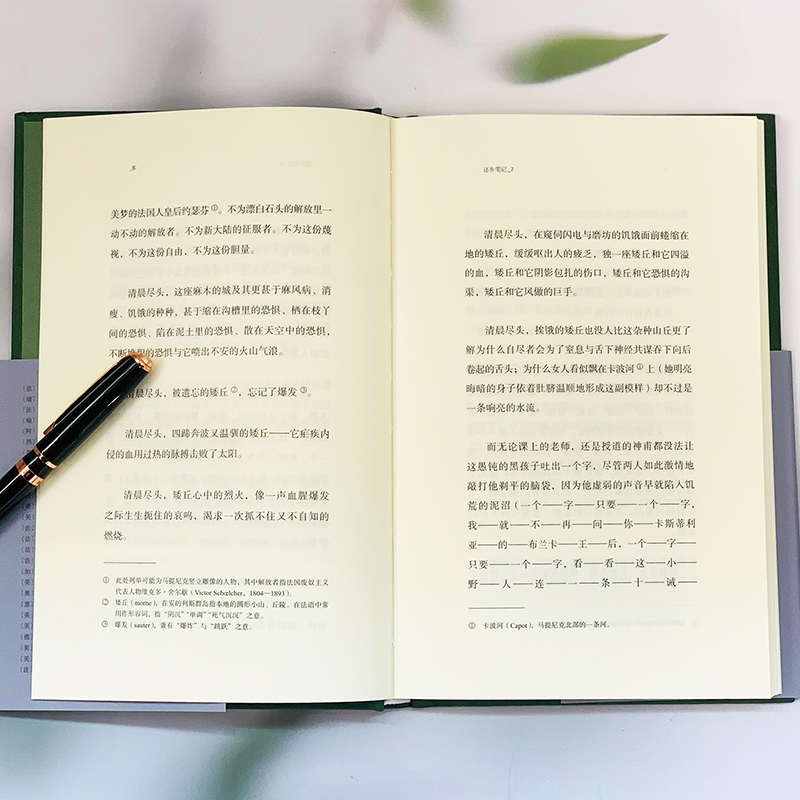 _6
美梦的法国人皇后约瑟芬①。不为漂白石头的解放里一
动不动的解放者。不为新大陆的征服者。不为这份蔑
视,不为这份自由,不为这份胆量。
清晨尽头,这座麻木的城及其更甚于麻风病、消
瘦、饥饿的种种,甚于缩在沟槽里的恐惧、栖在枝丫
间的恐惧、陷在泥土里的恐惧、散在天空中的恐惧,
不断堆积的恐惧与它喷出不安的火山气浪。
清晨尽头,被遗忘的矮丘②,忘记了爆发③。
清晨尽头,四蹄奔波又温驯的矮丘——它疟疾内
侵的血用过热的脉搏击败了太阳。
清晨尽头,矮丘心中的烈火,像一声血腥爆发
之际生生扼住的哀鸣,渴求一次抓不住又不自知的
燃烧。
① 此处列举可能为马提尼克竖立雕像的人物,其中解放者指法国废奴主义
代表人物维克多·舍尔歇(Victor Schœlcher,1804—1893)。
② 矮丘(morne),在安的列斯群岛指本地的圆形小山、丘陵。在法语中常
用作形容词,指“阴沉”“单调”“死气沉沉”之意。
③ 爆发(sauter),兼有“爆炸”与“跳跃”之意。
还乡笔记_7
清晨尽头,在窥伺闪电与磨坊的饥饿面前蜷缩在
地的矮丘,缓缓呕出人的疲乏,独一座矮丘和它四溢
的血,矮丘和它阴影包扎的伤口,矮丘和它恐惧的沟
渠,矮丘和它风做的巨手。
清晨尽头,挨饿的矮丘也没人比这杂种山丘更了
解为什么自尽者会为了窒息与舌下神经共谋吞下向后
卷起的舌头;为什么女人看似飘在卡波河①上(她明亮
晦暗的身子依着肚脐温顺地形成这副模样)却不过是
一条响亮的水流。
而无论课上的老师,还是授道的神甫都没法让
这愚钝的黑孩子吐出一个字,尽管两人如此激情地
敲打他剃平的脑袋,因为他虚弱的声音早就陷入饥
荒的泥沼(一个——字——只要——一个——字,
我——就——不——再——问——你——卡斯蒂利
亚——的——布兰卡——王——后,一个——字——
只要——一个——字,看——看——这——小——
野——人——连——一——条——十——诫——
① 卡波河(Capot),马提尼克北部的一条河。